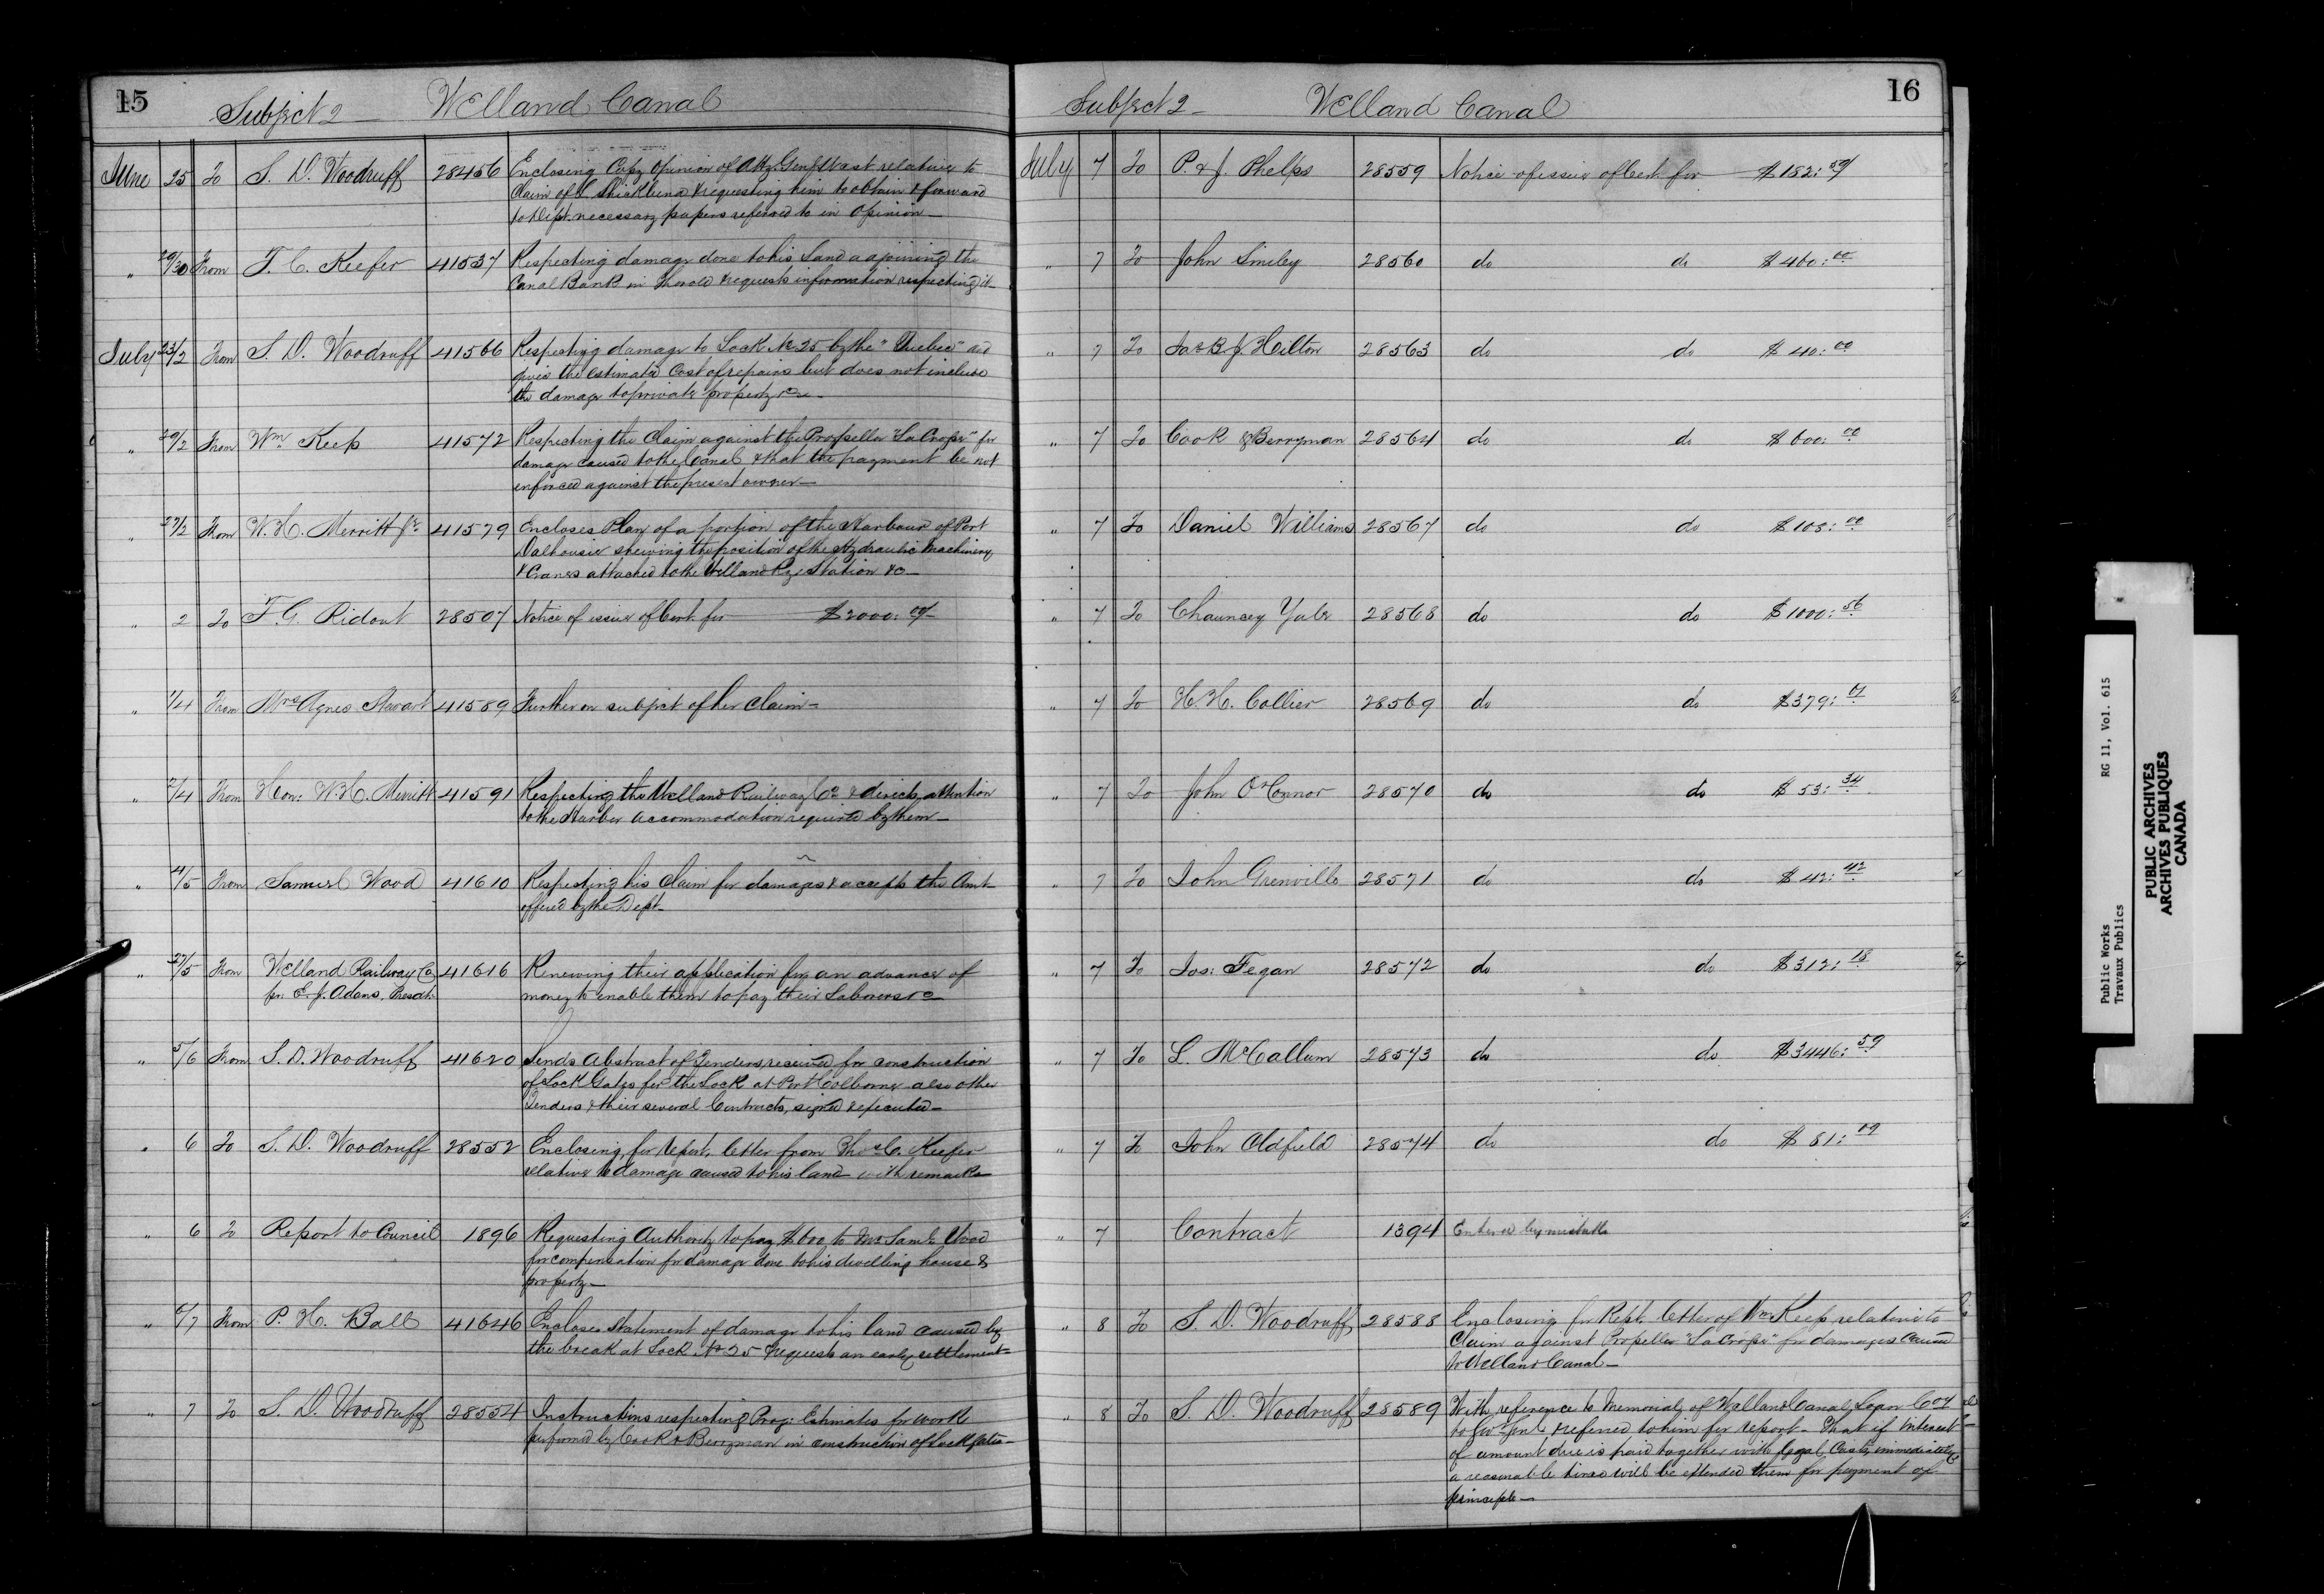 15
Subject 2 Welland Canal
June 25 To S. D. Woodruff 28456 Enclosing Copy Opinion of Atty Genl West relative to
Claim of L. Shickluna & requesting him to obtain & forward
to Dept. necessary papers referred to in Opinion
" 29/30 From T. C. Keefer 41537 Respecting damage done to his Land adjoining the
Canal Bank in Thorold & requests information respecting it
July 23/2 From S. D. Woodruff 41566 Respecting damage to Lock No 25 by the "Quebec" and
gives the estimated Cost of repairs but does not include
the damage to private property &c
" 29/2 From Wm Keep 41572 Respecting the Claim against the Propeller "La Crosse" for
damage caused to the Canal & that the payment be not
enforced against the present owner
" 27/2 From W. H. Merritt Jr. 41579 Encloses Plan of a portion of the Harbour of Port
Dalhousie shewing the position of the Hydraulic Machinery
& Cranes attached to the Welland Ry Station &c
" 2 To T. G. Ridout 28507 Notice of issue of Cert. for $2000:00
" 1/4 From Mrs Agnes Stewart 41589 Further on subject of her Claim
" 2/4 From Hon: W. H. Merritt 41591 Respecting the Welland Railway Co & directs attention
to the Harbor accommodation required by them
" 4/5 From Samuel Wood 41610 Respecting his Claim for damages & accepts the Amt
offered by the Dept
" 27/5 From Welland Railway Co 41616 Renewing their application for an advance of
per E. J. Adams, Presdt. money to enable them to pay their Laborers &c
" 5/6 From S. D. Woodruff 41620 Sends Abstract of Tenders received for construction
of Lock Gates for the Lock at Port Colborne also other
Tenders & their several Contracts, signed & executed
" 6 To S. D. Woodruff 28552 Enclosing, for Report, letter from Thos C. Keefer
relative to damage caused to his land with remarks
" 6 To Report to Council 1896 Requesting Authority to pay $600 to Mr Saml Wood
for compensation for damage done to his dwelling house &
property
" 6/7 From P. H. Ball 41646 Encloses Statement of damage to his land caused by
the break at Lock No 25 & requests an early settlement
" 7 To S. D. Woodruff 28554 Instructions respecting Prog: Estimates for work
performed by Cook & Berryman in construction of Lock gates
16
Subject 2 Welland Canal
July 7 To P. & J. Phelps 28559 Notice of issue of Cert. for $182:
" 7 To John Smiley 28560 do do $400:00
" 7 To Jas & B J. Hilton 28563 do do $40:00
" 7 To Cook & Berryman 28564 do do $600:00
" 7 To Daniel Williams 28567 do do $108:00
" 7 To Chauncey Yale 28568 do do $1000:56
" 7 To H. H. Collier 28569 do do $379:
" 7 To John O'Connor 28570 do do $53:34
" 7 To John Grenville 28571 do do $42:42
" 7 To Jas: Fegan 28572 do do $312:18
" 7 To L. McCallum 28573 do do $3446:59
" 7 To John Oldfield 28574 do do $81:09
" 7 Contract 1394 Entered by mistake
" 8 To S. D. Woodruff 28588 Enclosing for Rept. letter of Wm Keep relative to
Claim against Propeller "La Crosse" for damages caused
to Welland Canal
" 8 To S. D. Woodruff 28589 With reference to Memorial of Welland Canal Loan Coy
to Gov Genl & referred to him for report. That if interest
of amount due is paid together with legal Costs immediately
a reasonable time will be extended them for payment of
principle
Public Works RG 11, Vol. 615
Travaux Publics
PUBLIC ARCHIVES
ARCHIVES PUBLIQUES
CANADA